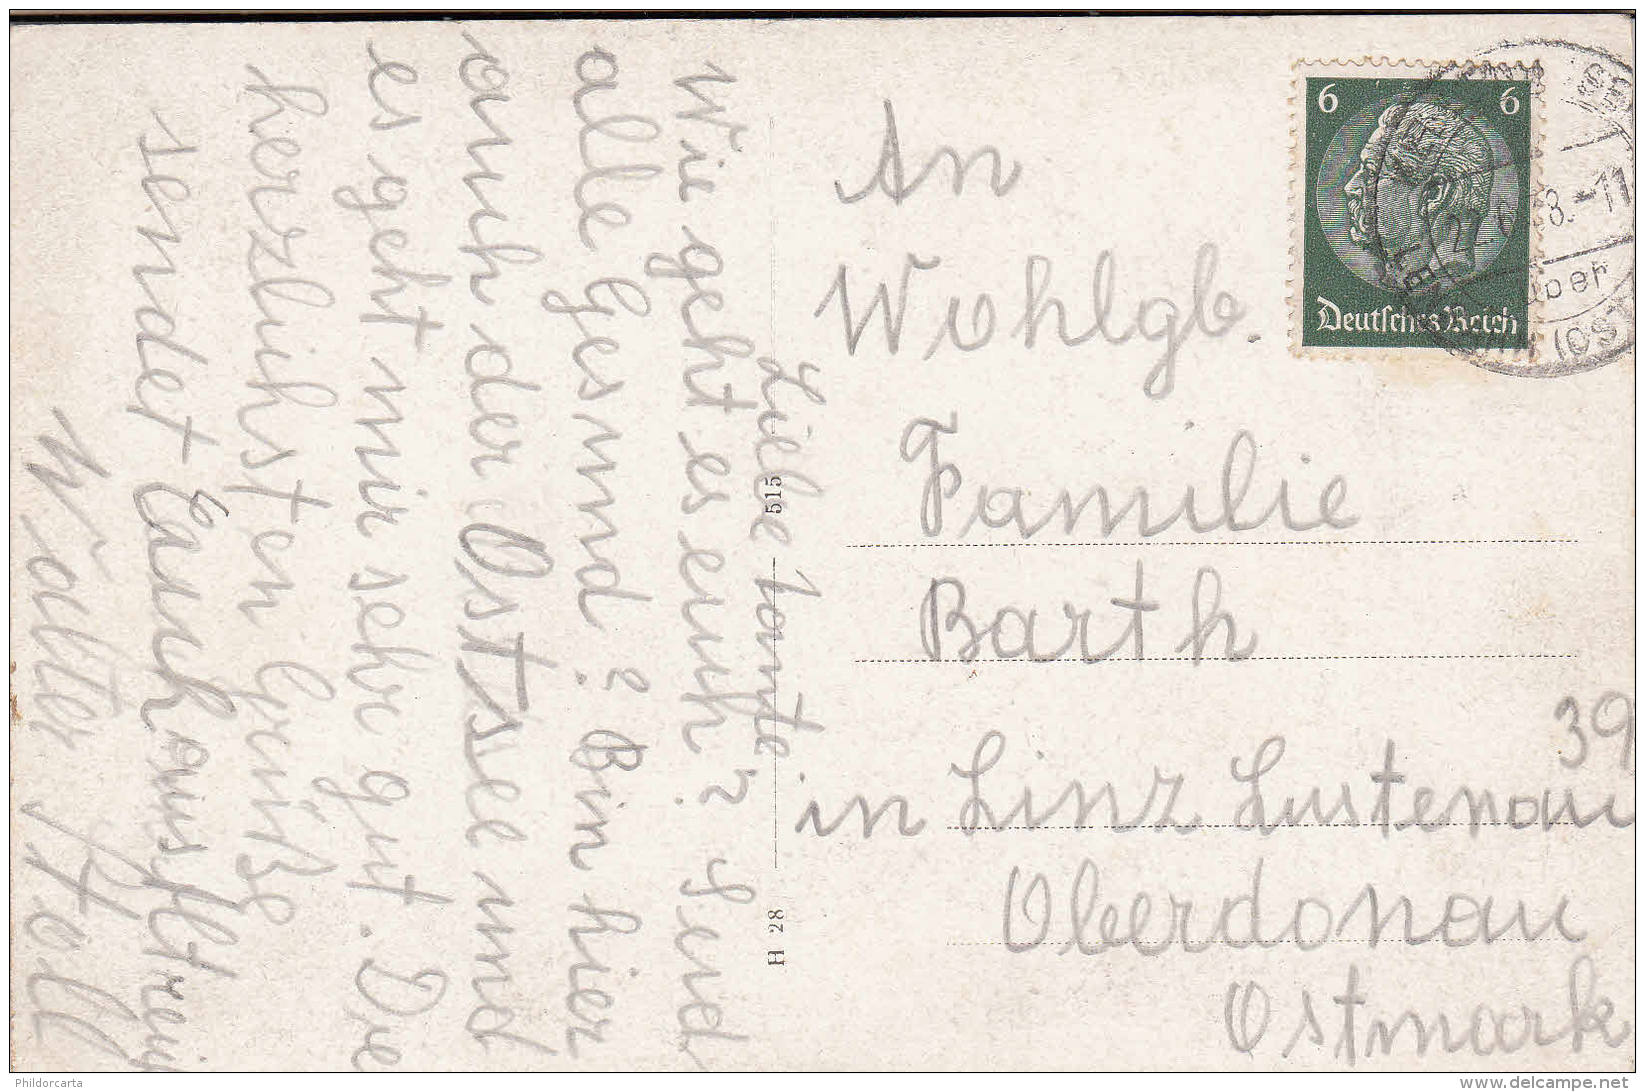 Liebe Tante
Wie geht es euch? Seid
alle Gesund? Bin hier
auch der OstSee und
es geht mir sehr gut. Die
herzlichsten Grüße
sendet Euch aus
Walter Stoll
An
Wohlgb.
Familie
Barth
39
in Linz Lustenau
Oberdonau
Ostmark
6 6
Deutsches Reich
515
H 28
Phildorcarta
www.delcampe.net